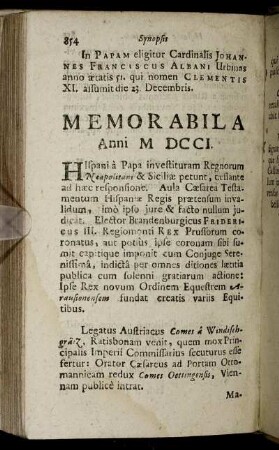 854 Synopsis
In PAPAM eligitur Cardinalis JOHAN-
NES FRANCISCUS ALBANI Urbinas
anno ætatis 51. qui nomen CLEMENTIS
XI. assumit die 23. Decembris.
MEMORABILA
Anni M DCCI.
HIspani â Papa investituram Regnorum
Neapolitani & Siciliæ petunt, cessante
ad hæc responsione. Aula Cæsarea Testa-
mentum Hispaniæ Regis prætensum inva-
lidum, imò ipso jure & facto nullum ju-
dicat. Elector Brandenburgicus FRIDERI-
CUS III. Regiomonti REX Prussorum co-
ronatus, aut potiùs ipse coronam sibi su-
mit capitique imponit cum Conjuge Sere-
nissimâ, indictâ per omnes ditiones lætitia
publica cum solenni gratiarum actione:
Ipse Rex novum Ordinem Equestrem A-
rausionensem fundat creatis variis Equi-
tibus.
Legatus Austriacus Comes à Windisch-
grätz, Ratisbonam venit, quem mox Prin-
cipalis Imperii Commissarius secuturus esse
fertur: Orator Cæsareus ad Portam Otto-
mannicam redux Comes Oettingensis, Vien-
nam publicè intrat.
Ma-